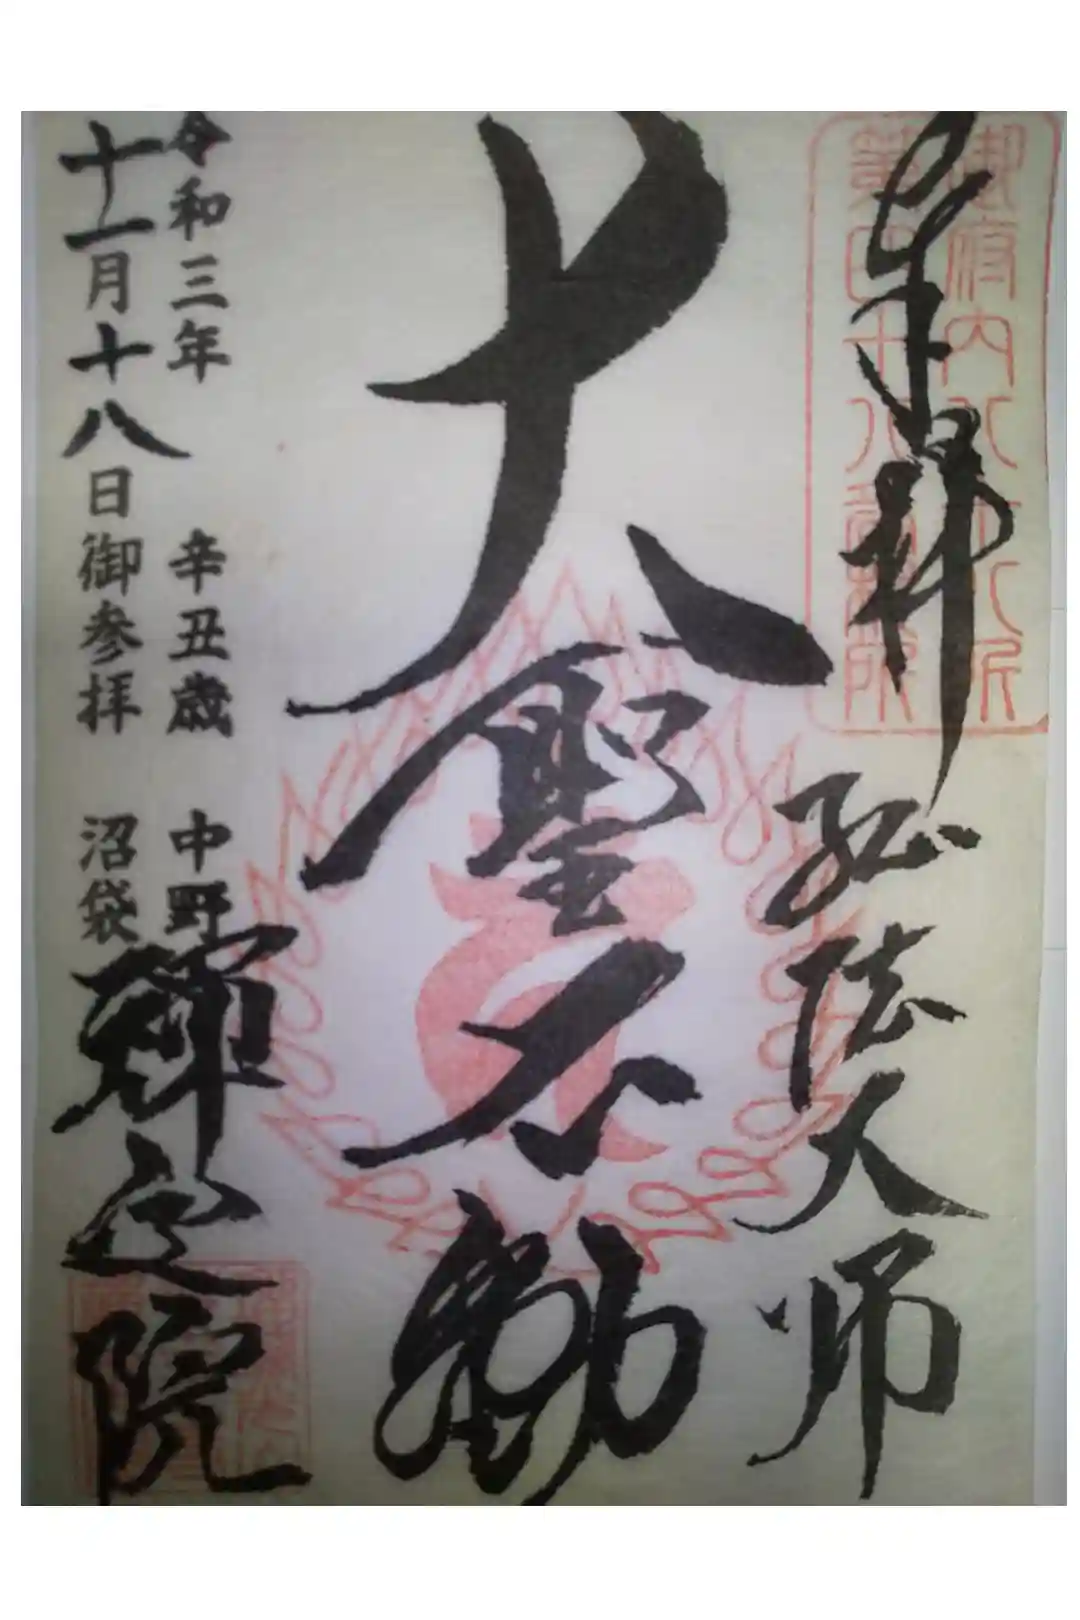 奉拝
御府内八十八所
第四十八番札所
弘法大師
大聖不動
令和三年 辛丑歳 中野
十一月十八日御参拝 沼袋
禅定院